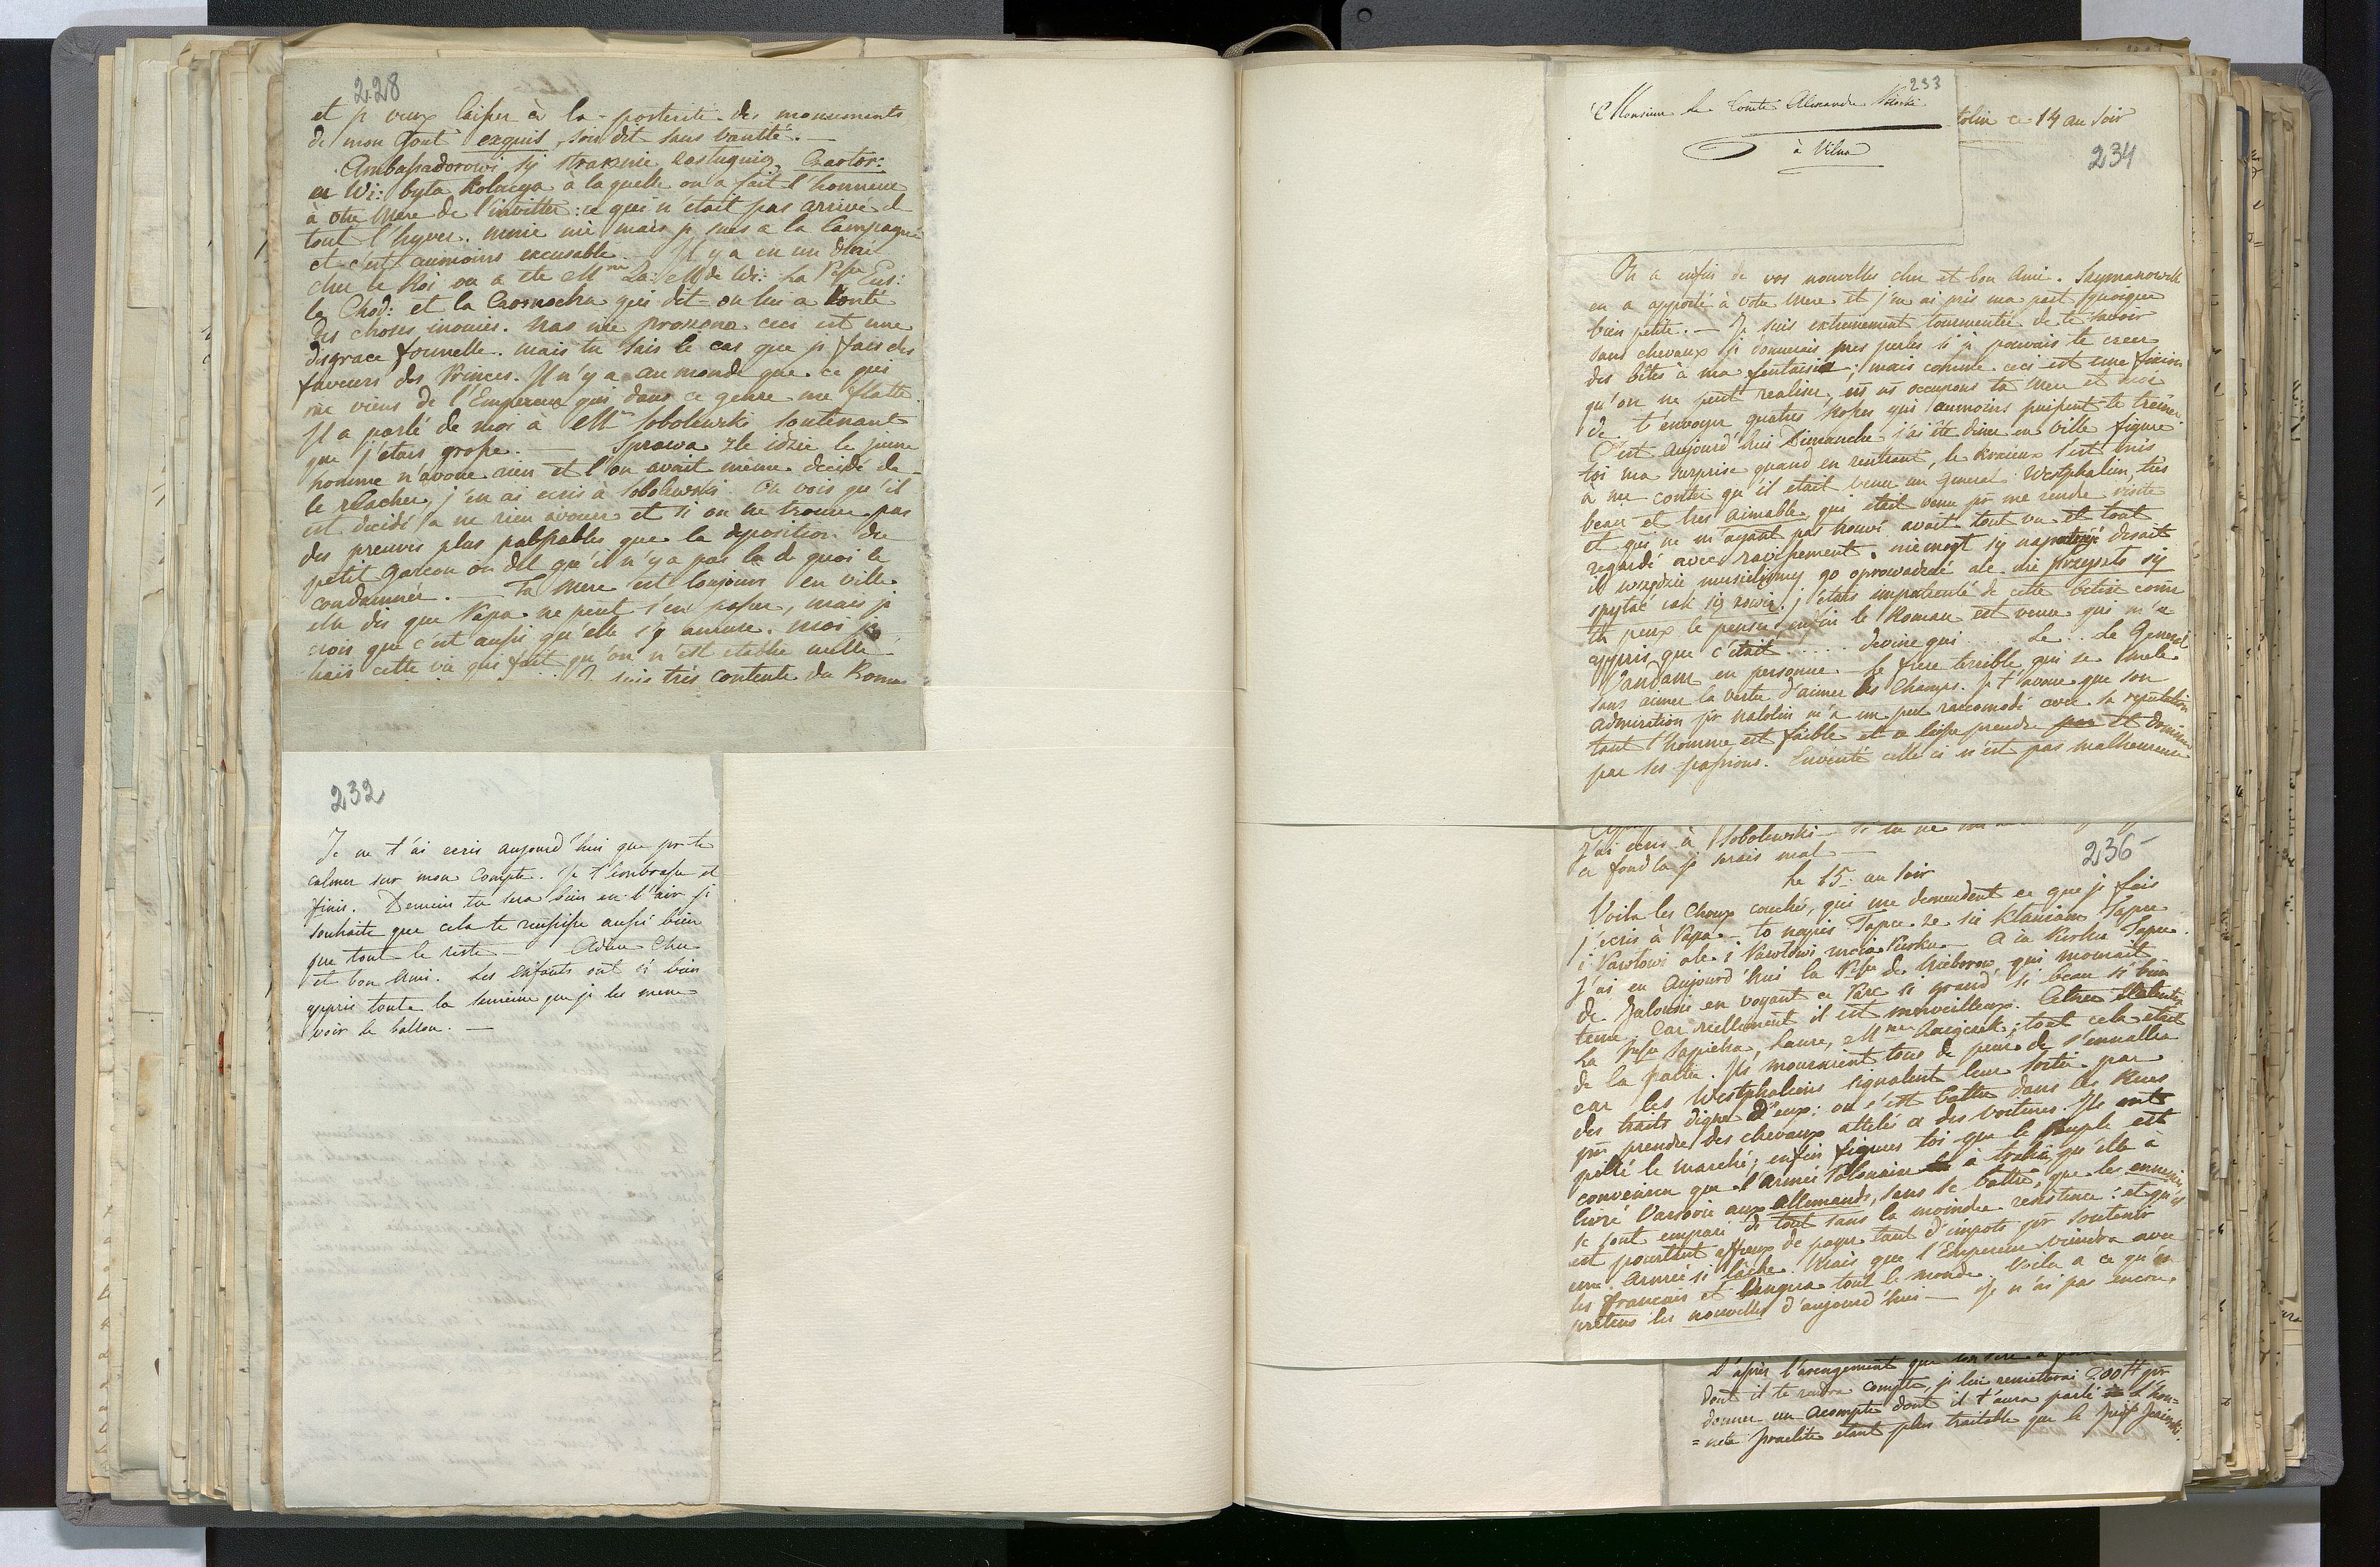 228
et je veux laisser à la posterité des monuments
de mon gout exquis, soit dit sans vanité. —
Ambassadorowi się strasznie
u Wi: była Kolacya à laquelle on a fait l'honneur
à votre Mere de l'invitter: ce qui n'était pas arrivé de
tout l'hyver. mnie nie mais je suis a la Campagne
et c'est aumoins excusable. — Il y a eu un diné
chez le Roi ou a été Mme La: Md de Wi: La Psse
la Chod: et la Czosnocha qui dit-on lui a conté
des choses inouies. Nas nie proszono ceci est une
disgrace formelle. mais tu sais le cas que je fais des
faveurs des Princes. Il n'y a au monde que ce qui
me viens de l'Empereur qui dans ce genre me flatte.
Il a parlé de moi à Mr Sobolewski soutenant
que j'etais grosse. — Sprawa zle idzie le jeune
homme n'avoue rien et l'on avait meme decidé de
le relacher, j'en ai ecris à Sobolewski. On vois qu'il
est decidé a ne rien avouer et si on ne trouve pas
des preuves plus palpables que la deposition du
petit garcon on dit qu'il n'y a pas là de quoi le
condamner. — Ta Mere est toujours en ville
elle dis que Papa ne peut s'en passer, mais je
crois que c'est aussi qu'elle s'y amuse. Moi je
hais cette vie qui fait qu'on n'est etablie nulle
suis très contente du Roman
232
Je ne t'ai ecris aujourd'hui que pr te
calmer sur mon compte. Je t'embrasse et
finis. Demain tu sera bien en l'air je
souhaite que cela te reussisse aussi bien
que tout le reste — Adieu Cher
et bon Ami. Les enfants ont si bien
appris toute la semaine que je les mene
voir le ballon. —
233
Monsieur le Comte Alexandre Potocki
à Vilna
tolin ce 14 au soir
234
On a enfin de vos nouvelles cher et bon Ami. Szymanowski
en a apporté à votre Mere et j'en ai pris ma part quoique
bien petite. — Je suis extremement tourmentée de te savoir
sans chevaux je donnerais mes perles si je pouvais te creer
des bêtes à ma fantaisie; mais comme ceci est une fiction
qu'on ne peut realiser, ns ns occupons ta Mere et moi
de t'envoyer quatres rosses qui aumoins puissent te trainer.
C'est aujourd'hui Dimanche j'ai été diner en ville figure
toi ma surprise quand en rentrant, le s'est mis
à me conter qu'il etait venu un General Westphalien, très
beau et tres aimable, qui était venu pr me rendre visite
et qui ne m'ayant pas trouvé avait tout vu et tout
regardé avec ravissement. niemogł się napatrzyć disait
il wszędzie musieliśmy go oprowadzać ale nie przyszło się
spytać iak się zowie. j'étais impatientée de cette betise come
tu peux le penser, enfin le Roman est venu qui m'a
appris que c'était ..... devine qui ..... Le .. Le General
Vandam en personne. Le frere terrible qui se mele
sans aimer la vertu d'aimer les Champs. Je t'avoue que son
admiration pr Natolin m'a un peu raccomodé avec sa reputation
tant l'homme est faible et se laisse prendre et dominer
par ses passions. Enverité celle ci n'est pas malheureuse
J'ai ecris à Sobolewski — Si tu ne
ce fond la je serais mal —
236
Le 15 au soir
Voila les Choux couchés, qui me demandent ce que je fais
j'ecris à Papa — to napisz Tapce ze się kłaniam Tapce
i Pawłowi ale i Pawłowi — A ia Tapce.
J'ai eu aujourd'hui la Psse de Nieborow qui mourait
de Jalousie en voyant ce Parc si grand si beau si bien
tenu, Car reellement il est merveilleux.
La Psse Sapieha, Laure, Mme; tout cela etait
de la partie. Ils mouraient tous de peur de s'enaller
car les Westphaliens signalent leur sortie par
des traits digne d'eux: on s'est battu dans les Rues
pr prendre des chevaux attelés a des voitures. Ils ont
pillé le marché; enfin figures toi que le Peuple est
convaincu que l'armée Polonaise a trahi, qu'elle à
livré Varsovie aux allemands, sans se battre, que les ennemis
se sont emparé de tout sans la moindre resistence: et qu'il
est pourtant affreux de payer tant d'impots pr soutenir
une armée si lâche. Mais que l'Empereur viendra avec
les francais et vangera tout le monde. Voila a ce qu'on
pretens les nouvelles d'aujourd'hui — Je n'ai pas encore
D'après l'arengement que
dont il te rendra compte, je lui remetterai 200 # pr
donner un acompte dont il t'aura parlé l'hon=
=nete Israelite etant plus traitable que le Juif